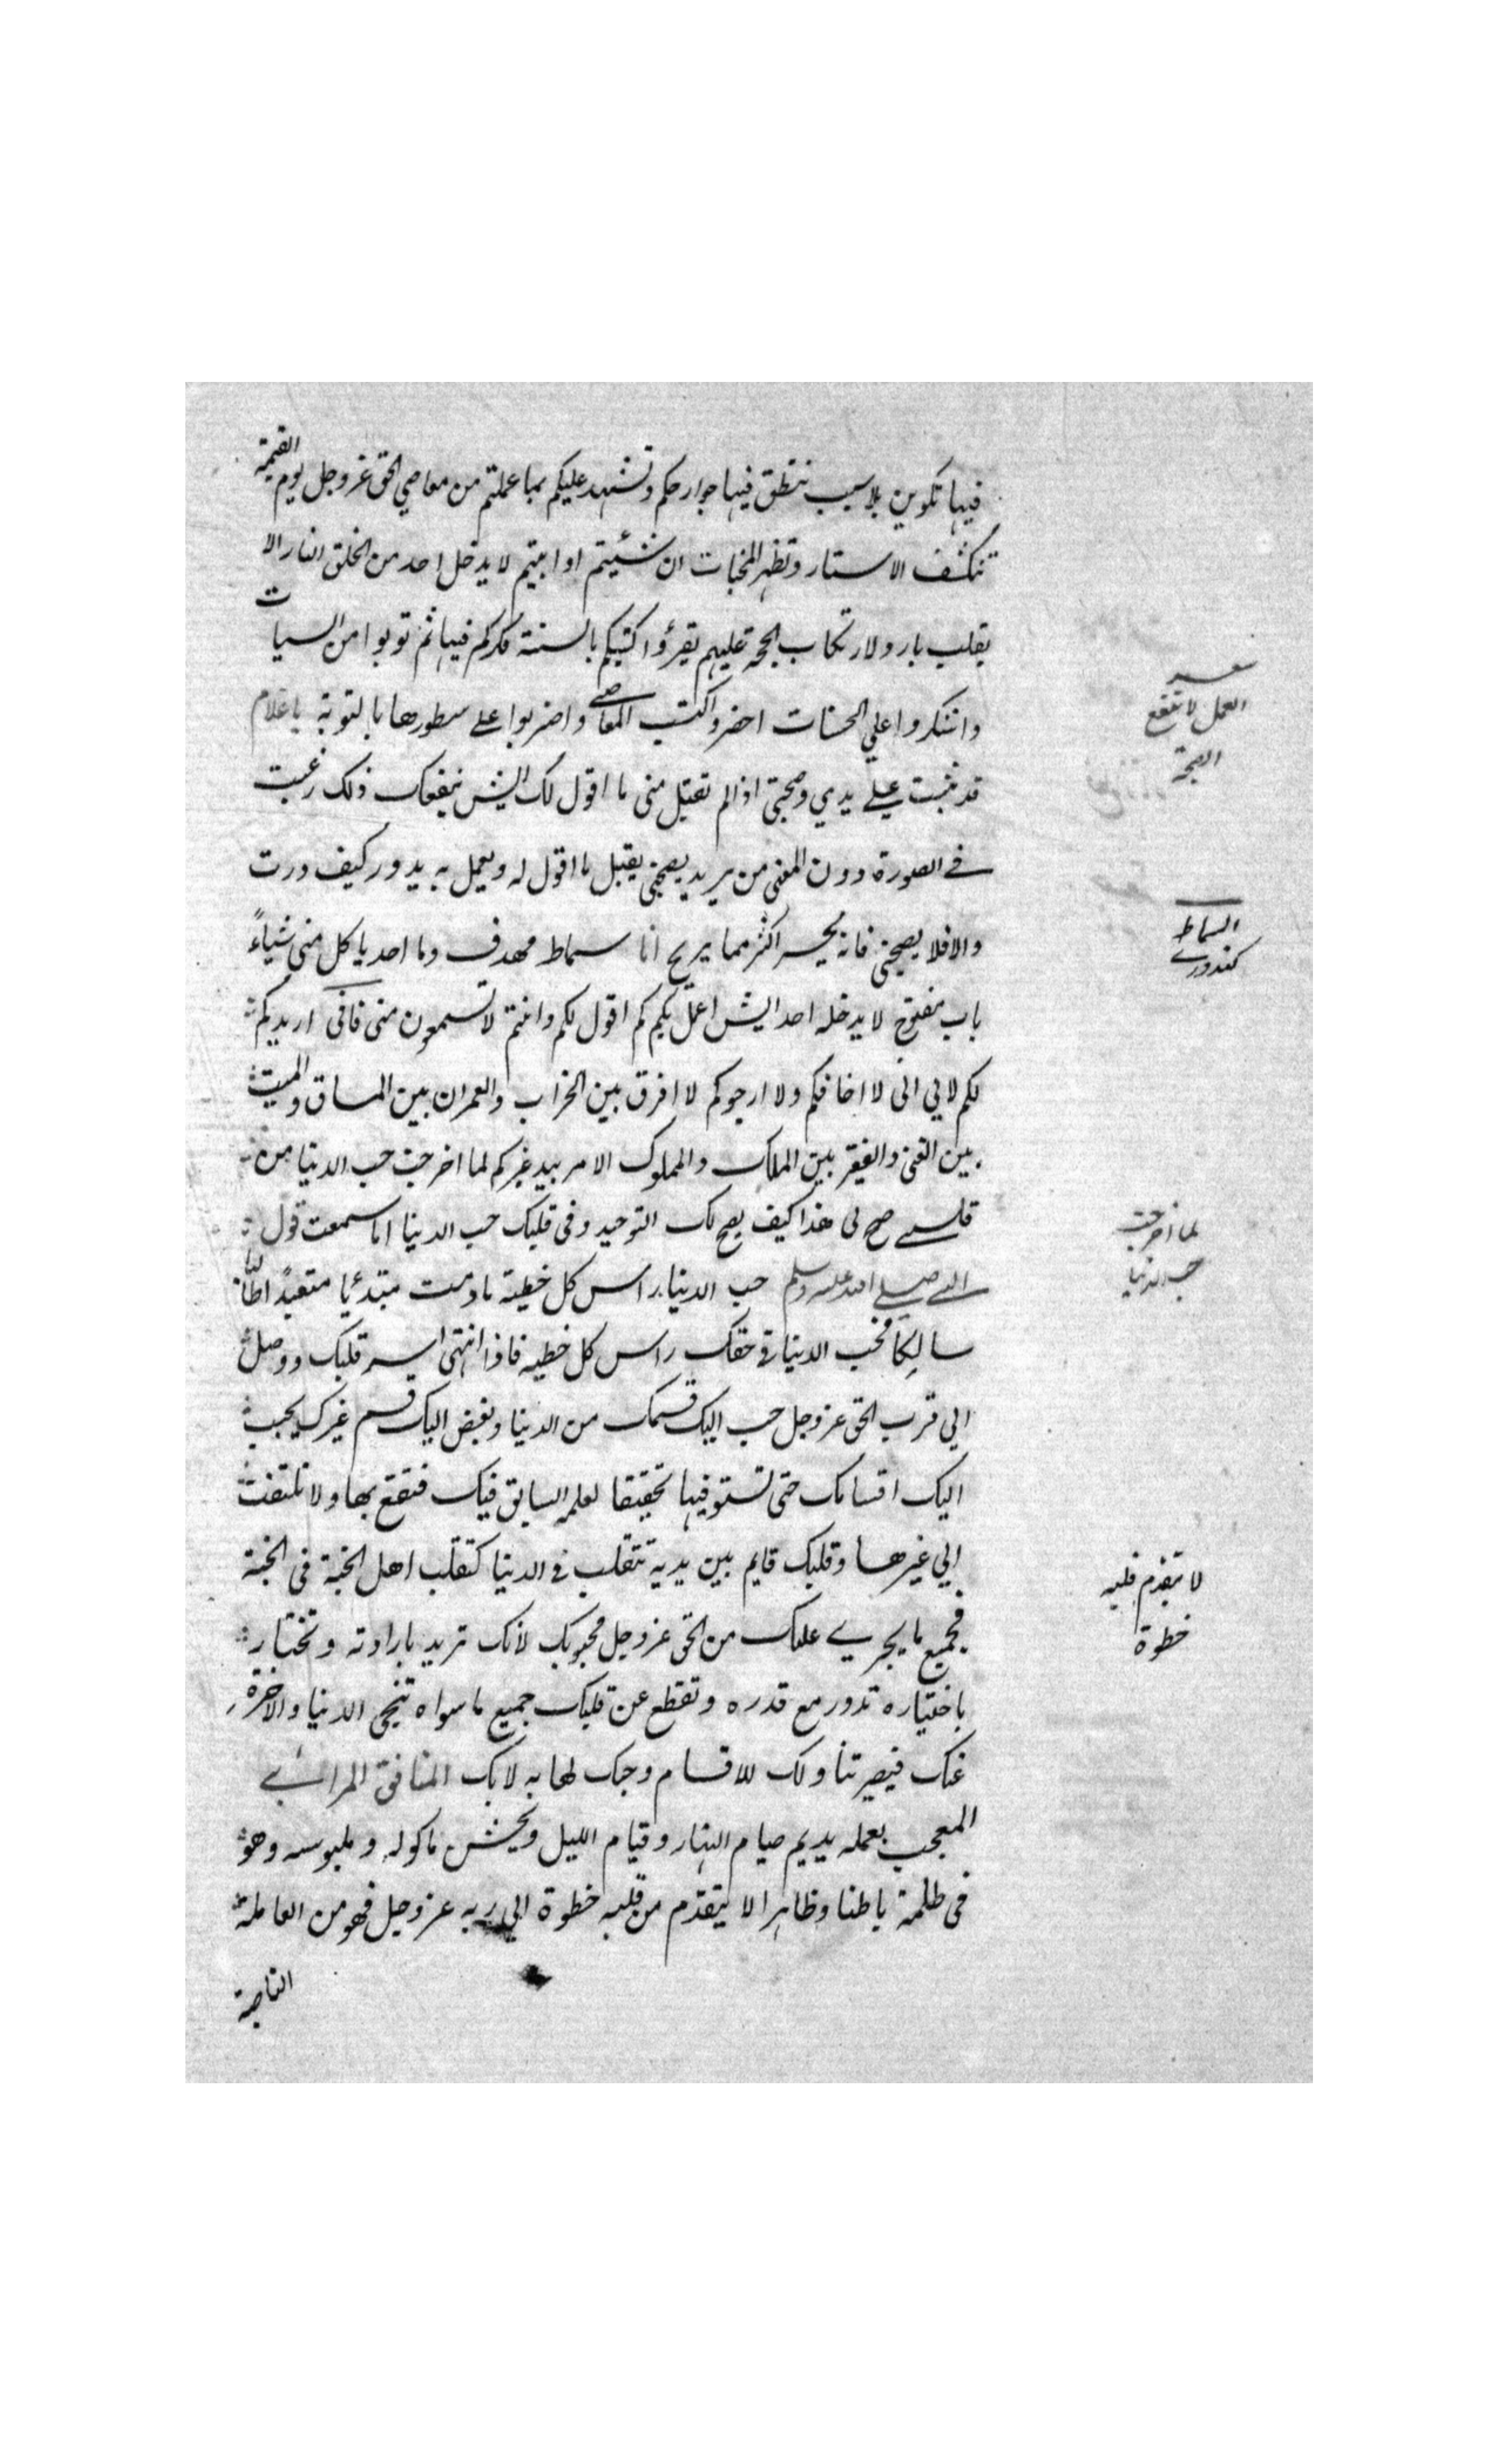 فيها تكوين بلا سبب تنطق فيها جوارحكم وتشهد عليكم بما عملتم من معاصي الحق عز وجل يوم القيمة
تنكشف الاستار وتظهر المخبات ان شئيتم او ابيتم لا يدخل احد من الخلق النار الا
بقلب بار ولارتكاب الحجة عليهم يقرؤا كتبكم بالسنة فكركم فيها ثم توبوا من السيات
واشكروا علي الحسنات احضروا كتب المعاصي واضربوا على سطورها بالتوبة يا غلام
قد تبت على يدي وصحبتني اذا لم تقبل مني ما اقول لك ايش ينفعك ذلك رغبت
في الصورة دون المعنى من يريد يصحبني يقبل ما اقول له ويعمل به يدور كيف درت
والا فلا يصحبني فانه يخسر اكثر مما يربح انا سماط مهدف وما احد ياكل مني شياءً
باب مفتوح لا يدخله احد ايش اعمل بكم كم اقول لكم وانتم لا تسمعون مني فاني اريدكم
لكم لا لي اني لا اخافكم ولا ارجوكم لا افرق بين الخراب والعمران بين الباق والميت
بين الغني والفقير بين الملك والمملوك الامر بيد غيركم لما اخرجت حب الدنيا من
قلبي صح لي هذا كيف يصح لك التوحيد وفي قلبك حب الدنيا اما سمعت قول
النبي صلى الله عليه وسلم حب الدنيا راس كل خطية ما دمت مبتدئا متعبدً اطالبا
سالكا فحب الدنيا في حقك راس كل خطيه فاذا انتهى اسير قلبك ووصل
الي قرب الحق عز وجل حبب اليك قسمك من الدنيا وبغض اليك قسم غيرك يحبب
اليك اقسامك حتى تستوفيها تحقيقا لعلمه السابق فيك فتقنع بها ولا تلتفت
الي غيرها وقلبك قايم بين يديه تتقلب في الدنيا كتقلب اهل الجنة في الجنة
فجميع ما يجري عليك من الحق عز وجل محبوبك لانك تريد بارادته وتختار
باختياره تدور مع قدره وتقطع عن قلبك جميع ما سواه تنحي الدنيا والاخرة
عنك فيصير تناولك للاقسام وحبك لها به لا بك المنافق المرائي
المعجب بعمله يديم صيام النهار وقيام الليل ويخشن ماكوله وملبوسه وهو
في ظلمة باطنا وظاهرا لا يتقدم من قلبه خطوة الي ربه عز وجل فهو من العاملة
الناصبة
العمل لا تنفع
الصحبة
السماط
كندوري
لما اخرجت
حب الدنيا
لا يتقدم قلبه
خطوة